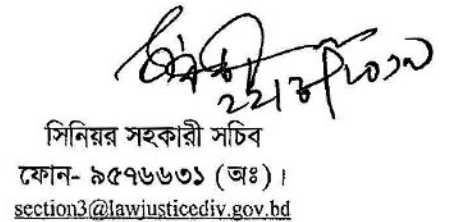 সিনিয়র সহকারী সচিব
ফোন- ৯৫৭৬৬৩১ (অঃ)।
section3@lawjusticediv.gov.bd